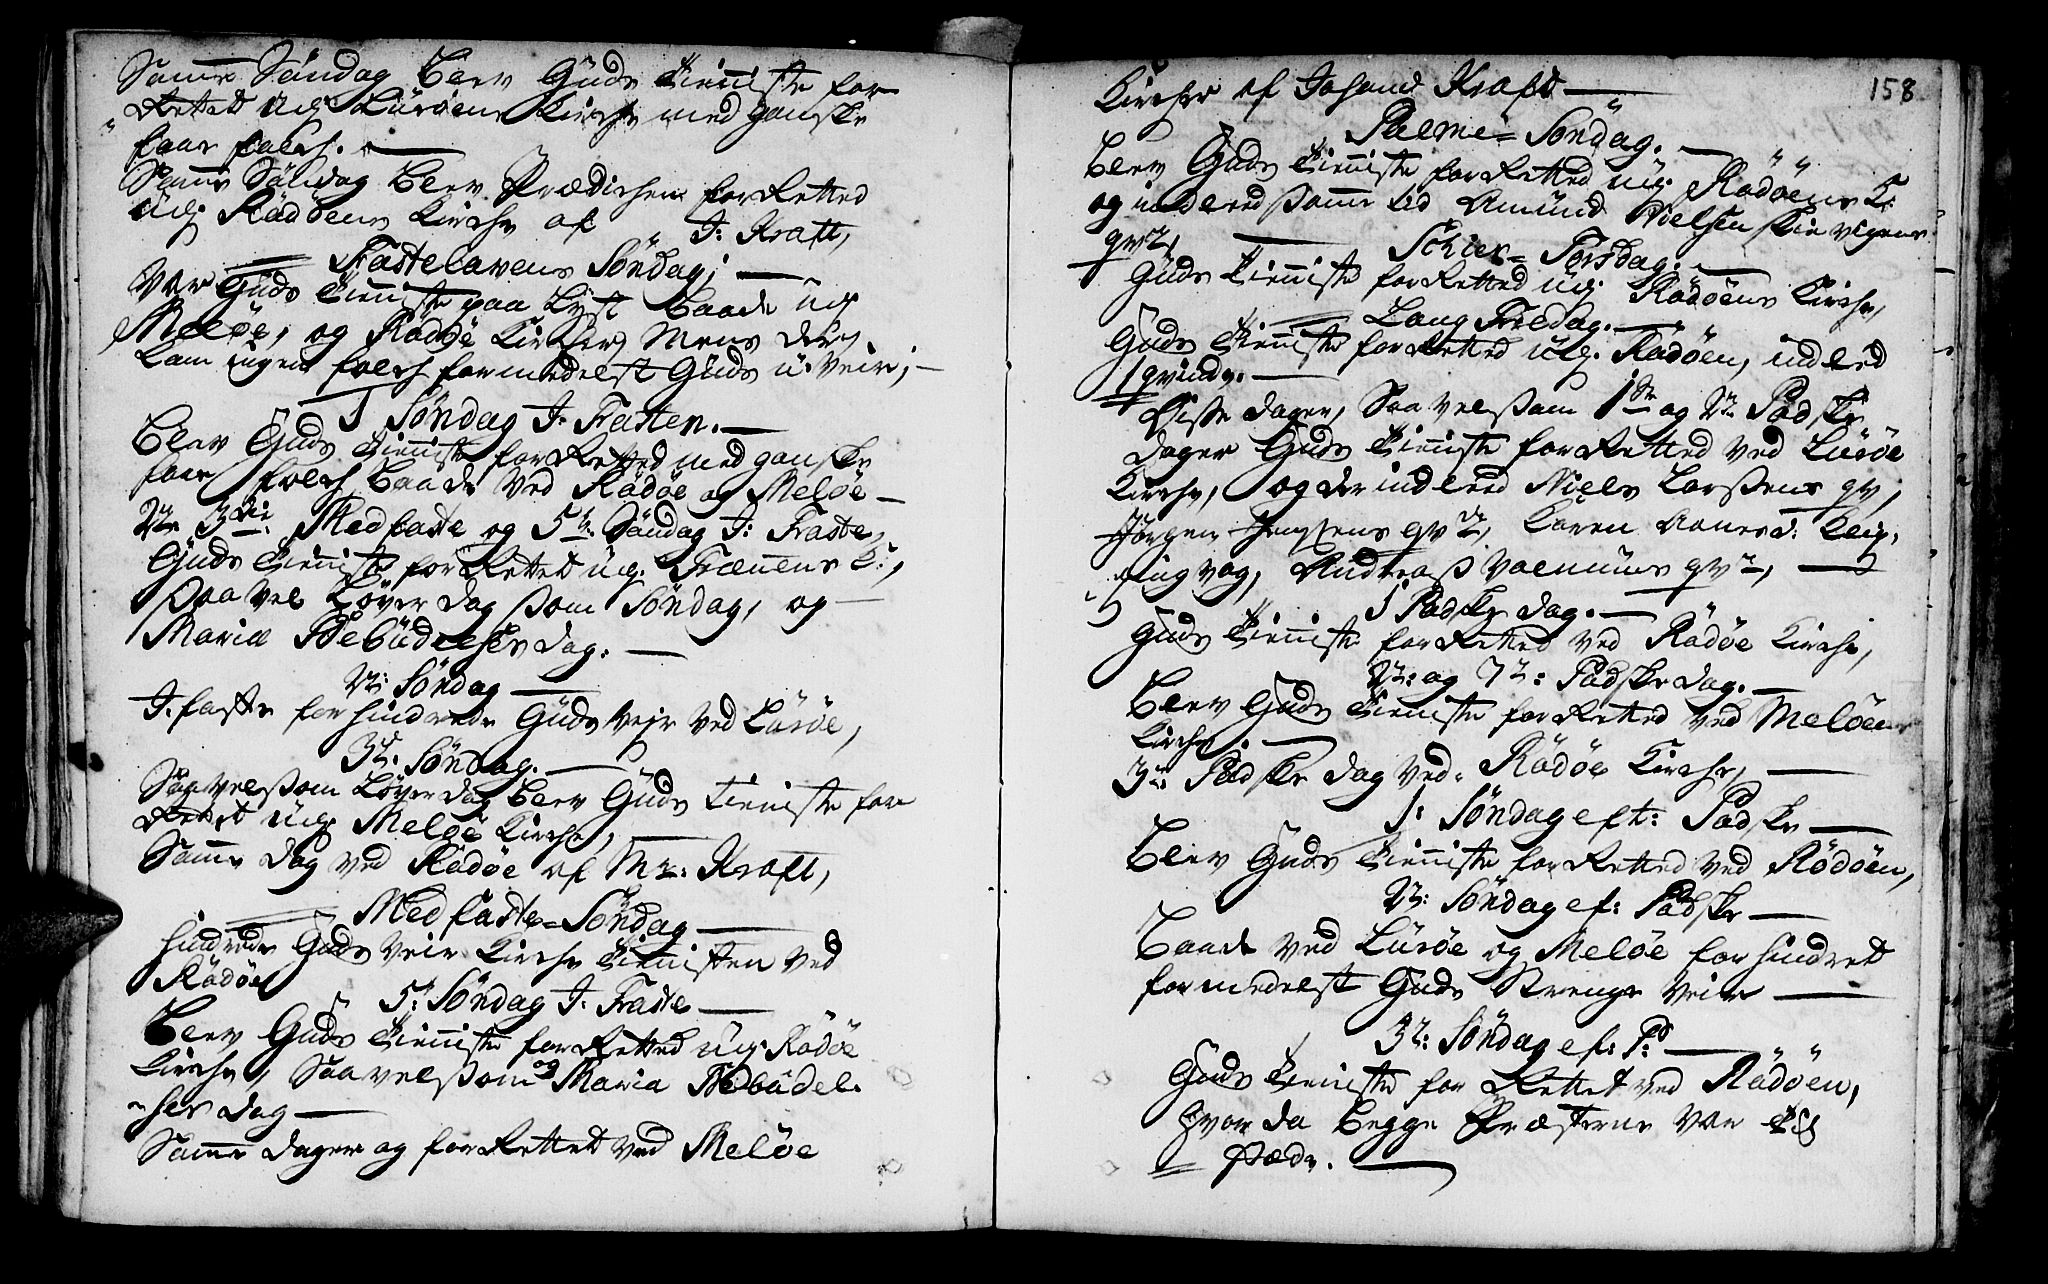 Samme Söndag blev Guds Tieniste for
Rettet udj Luröens Kirche med ganske
faae folch.
Samme Söndag blev Prædichen forRetted
udj Rödöens Kirche af J: Kraft,
Fastelavens Söndag;
Var Guds Tieniste paa Lyst baade udj
Melöe, og Rödöe Kircher, Mens der
kom ingen folch formedelst Guds u-Veir;
1 Söndag J. Fasten.
blev Guds Tieniste forRetted med ganske
faae folch baade ved Rödöe og Melöe
2n 3die Medfaste og 5te Söndag J: Faste,
Guds Tieniste forRettet udj Trænens K:,
saavel Löverdag som Söndag, og
Mariæ Bebudelses dag.
2n: Söndag
J. faste forhindrede Guds Vejr ved Luröe,
3de. Söndag.
Saavelsom Löverdag blev Guds Tieniste for
Rettet udj Melöe Kirche,
Samme dag ved Rödöe af Mr: Kraft,
Medfaste-Söndag
hindrede Guds Veir Kirche Tienisten ved
Rödöe
5: Söndag J. Faste
blev Guds Tieniste forRetted udj Rödöe
Kirche, Saavelsom og Maria Bebudel-
-ses dag
Samme dager og forRettet ved Melöe
158
Kircher af Johand Kraft
Palme-Söndag.
blev Guds Tieniste forRetted udj Rödöens K:
og indleed samme tid Amund Nielsen
Schier-Torsdag.
Guds Tieniste forRetted udj Rödöens Kirche,
Lang Fredag.
Guds Tieniste forRetted udj Rödöen, indleed
1 qvinde.
Disse dager, Saavelsom 1ste og 2n Paaske
dager Guds Tieniste forRetted ved Luröe
Kirche, og der indleed Niels Larsens qv,
Jörgen Jenssens qv, Karen
Andreas qv,
1 Paaske dag.
Guds Tieniste forRetted ved Rödöe Kirche,
2n: og Paaske dag.
blev Guds Tieniste forRetted ved Melöens
Kirche.
3n Paaske dag ved Rödöe Kirche,
1: Söndag eft: Paaske
blev Guds Tieniste forRetted ved Rödöen,
2n: Söndag ef: Paaske
baade ved Luröe og Melöe forhindret
formedelst Guds Strenge Veir
3n: Söndag ef: P:
Guds Tieniste forRettet ved Rödöen,
hvor da begge Præsterne var til
stæde.